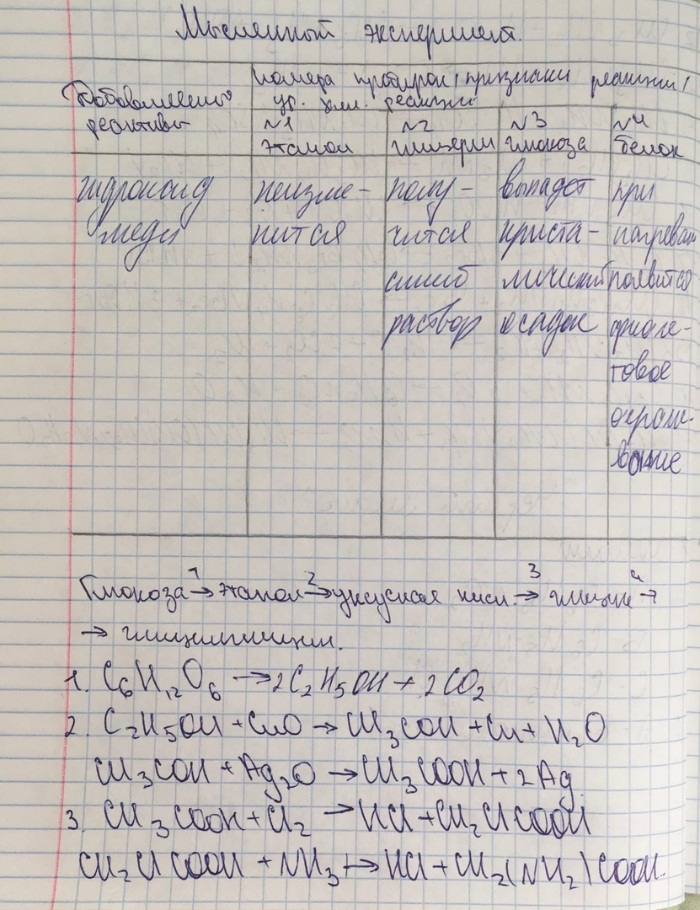 Мысленный эксперимент.
Добавленные реактивы
номера пробирок, признаки реакции,
ур. хим. реакции
№1 этанол
№2 глицерин
№3 глюкоза
№4 белок
гидроксид
меди
неизме-
нится
полу-
чится
синий
раствор
выпадет
криста-
лический
осадок
при
нагреван
появится
фиоле-
товое
окраши-
вание
Глюкоза 1→ этанол 2→ уксусная кисл. 3→ глицин 4→
→ глицилглицин.
1. C₆H₁₂O₆ → 2C₂H₅OH + 2CO₂
2. C₂H₅OH + CuO → CH₃COH + Cu + H₂O
CH₃COH + Ag₂O → CH₃COOH + 2Ag
3. CH₃COOH + Cl₂ → HCl + CH₂ClCOOH
CH₂ClCOOH + NH₃ → HCl + CH₂(NH₂)COOH.